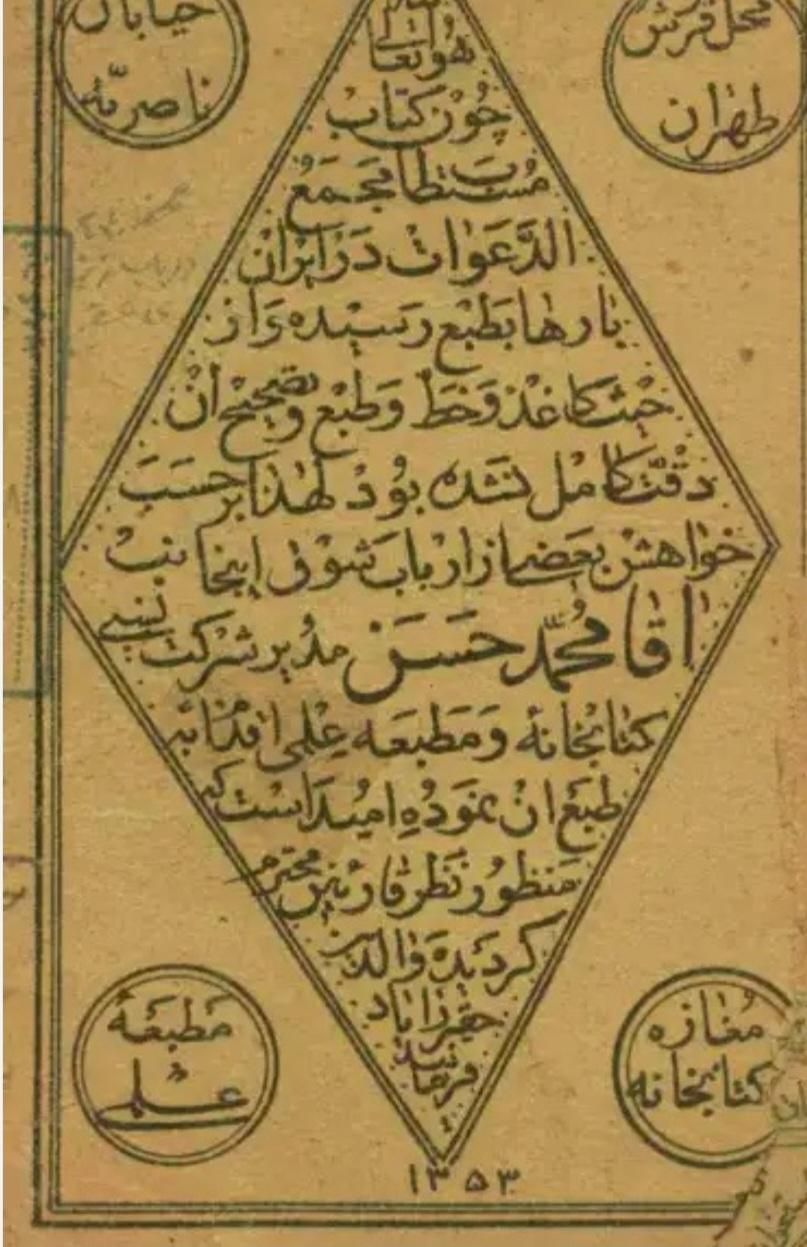 محل فروش
طهران
خیابان
ناصریّه
هو تعالی
چون کتاب
مستطاب مجمع
الدَّعوات در ایران
بارها بطبع رسیده و از
حیث کاغذ و خط و طبع و تصحیح آن
دقّت کامل نشده بود لهذا بر حسب
خواهش بعضی از ارباب شوق اینجانب
اقا محمّد حسن مدیر شرکت نسبی
کتابخانه و مطبعه علمی اقدام به
طبع ان نموده امید است که
منظور نظر قارئین محترم
گردیده والدین
حقیر را یاد
فرمایند
مغازه
کتابخانه
مطبعهٔ
علمی
۱۳۵۳